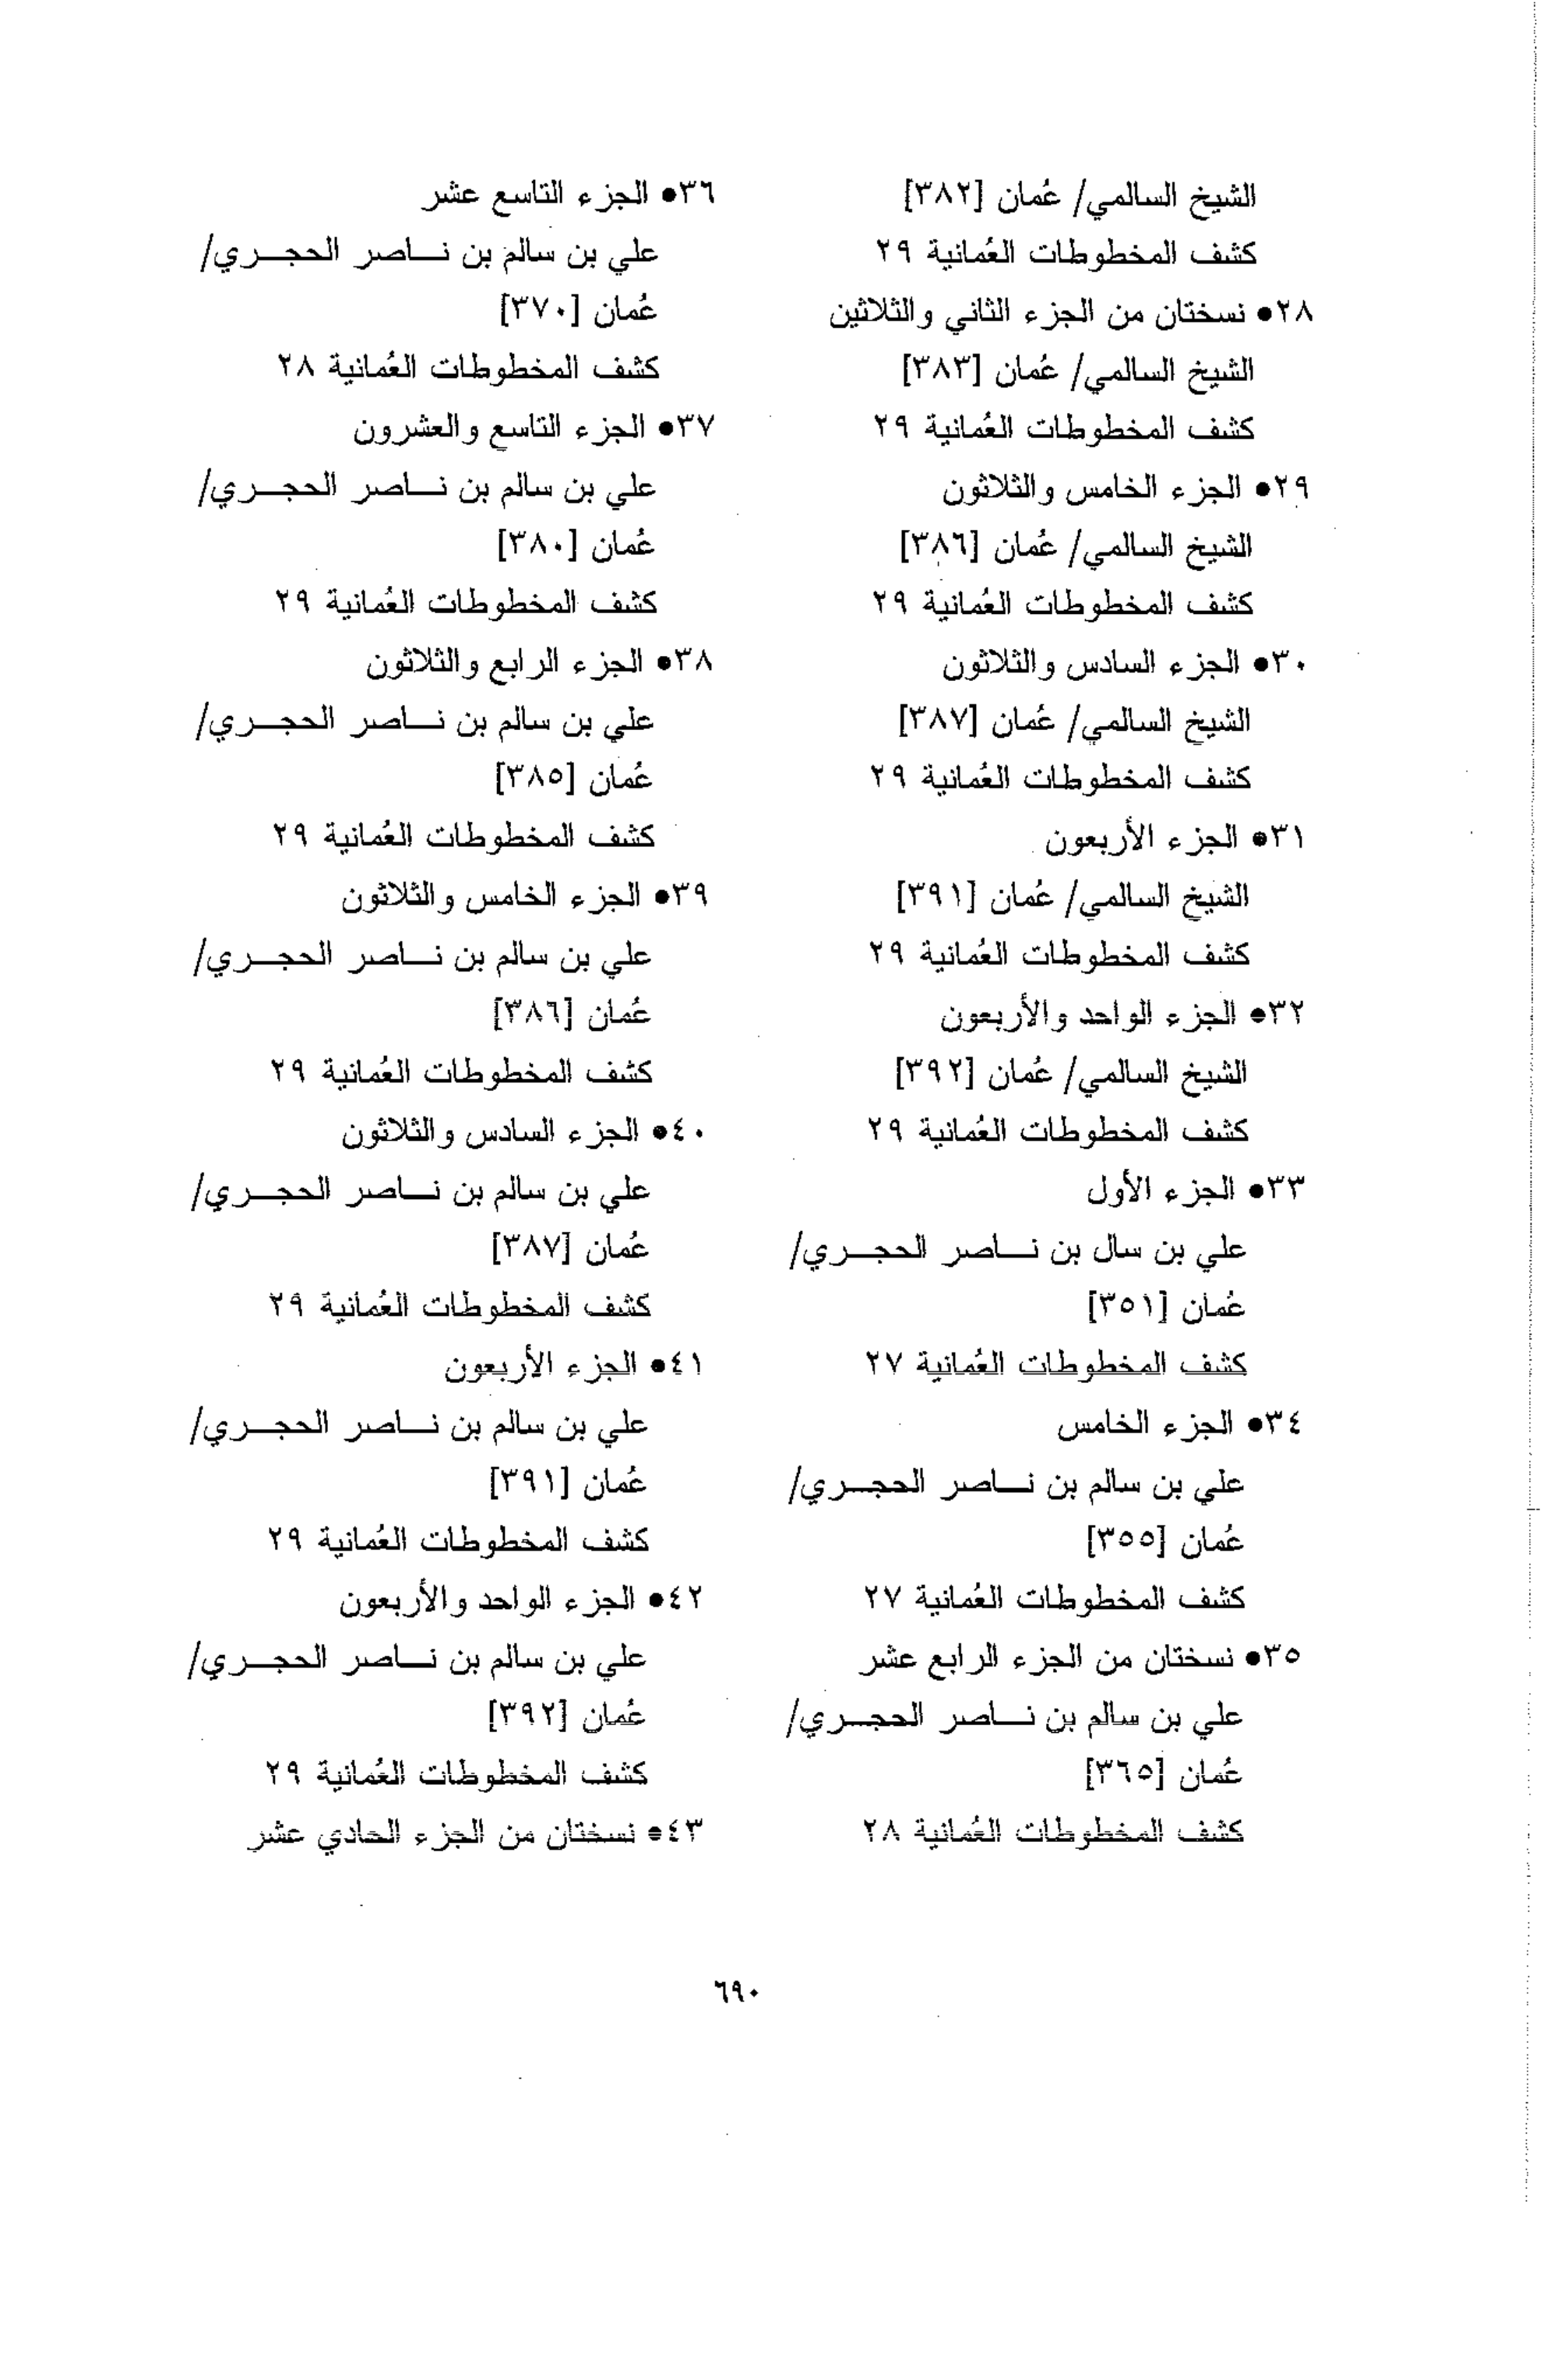 الشيخ السالمي/ عُمان [٣٨٢]
كشف المخطوطات العُمانية ٢٩
٢٨● نسختان من الجزء الثاني والثلاثين
الشيخ السالمي/ عُمان [٣٨٣]
كشف المخطوطات العُمانية ٢٩
٢٩● الجزء الخامس والثلاثون
الشيخ السالمي/ عُمان [٣٨٦]
كشف المخطوطات العُمانية ٢٩
٣٠● الجزء السادس والثلاثون
الشيخ السالمي/ عُمان [٣٨٧]
كشف المخطوطات العُمانية ٢٩
٣١● الجزء الأربعون
الشيخ السالمي/ عُمان [٣٩١]
كشف المخطوطات العُمانية ٢٩
٣٢● الجزء الواحد والأربعون
الشيخ السالمي/ عُمان [٣٩٢]
كشف المخطوطات العُمانية ٢٩
٣٣● الجزء الأول
علي بن سال بن نـــاصر الحجـــري/
عُمان [٣٥١]
كشف المخطوطات العُمانية ٢٧
٣٤● الجزء الخامس
علي بن سالم بن نـــاصر الحجـــري/
عُمان [٣٥٥]
كشف المخطوطات العُمانية ٢٧
٣٥● نسختان من الجزء الرابع عشر
علي بن سالم بن نـــاصر الحجـــري/
عُمان [٣٦٥]
كشف المخطوطات العُمانية ٢٨
٣٦● الجزء التاسع عشر
علي بن سالم بن نـــاصر الحجـــري/
عُمان [٣٧٠]
كشف المخطوطات العُمانية ٢٨
٣٧● الجزء التاسع والعشرون
علي بن سالم بن نـــاصر الحجـــري/
عُمان [٣٨٠]
كشف المخطوطات العُمانية ٢٩
٣٨● الجزء الرابع والثلاثون
علي بن سالم بن نـــاصر الحجـــري/
عُمان [٣٨٥]
كشف المخطوطات العُمانية ٢٩
٣٩● الجزء الخامس والثلاثون
علي بن سالم بن نـــاصر الحجـــري/
عُمان [٣٨٦]
كشف المخطوطات العُمانية ٢٩
٤٠● الجزء السادس والثلاثون
علي بن سالم بن نـــاصر الحجـــري/
عُمان [٣٨٧]
كشف المخطوطات العُمانية ٢٩
٤١● الجزء الأربعون
علي بن سالم بن نـــاصر الحجـــري/
عُمان [٣٩١]
كشف المخطوطات العُمانية ٢٩
٤٢● الجزء الواحد والأربعون
علي بن سالم بن نـــاصر الحجـــري/
عُمان [٣٩٢]
كشف المخطوطات العُمانية ٢٩
٤٣● نسختان من الجزء الحادي عشر
٦٩٠